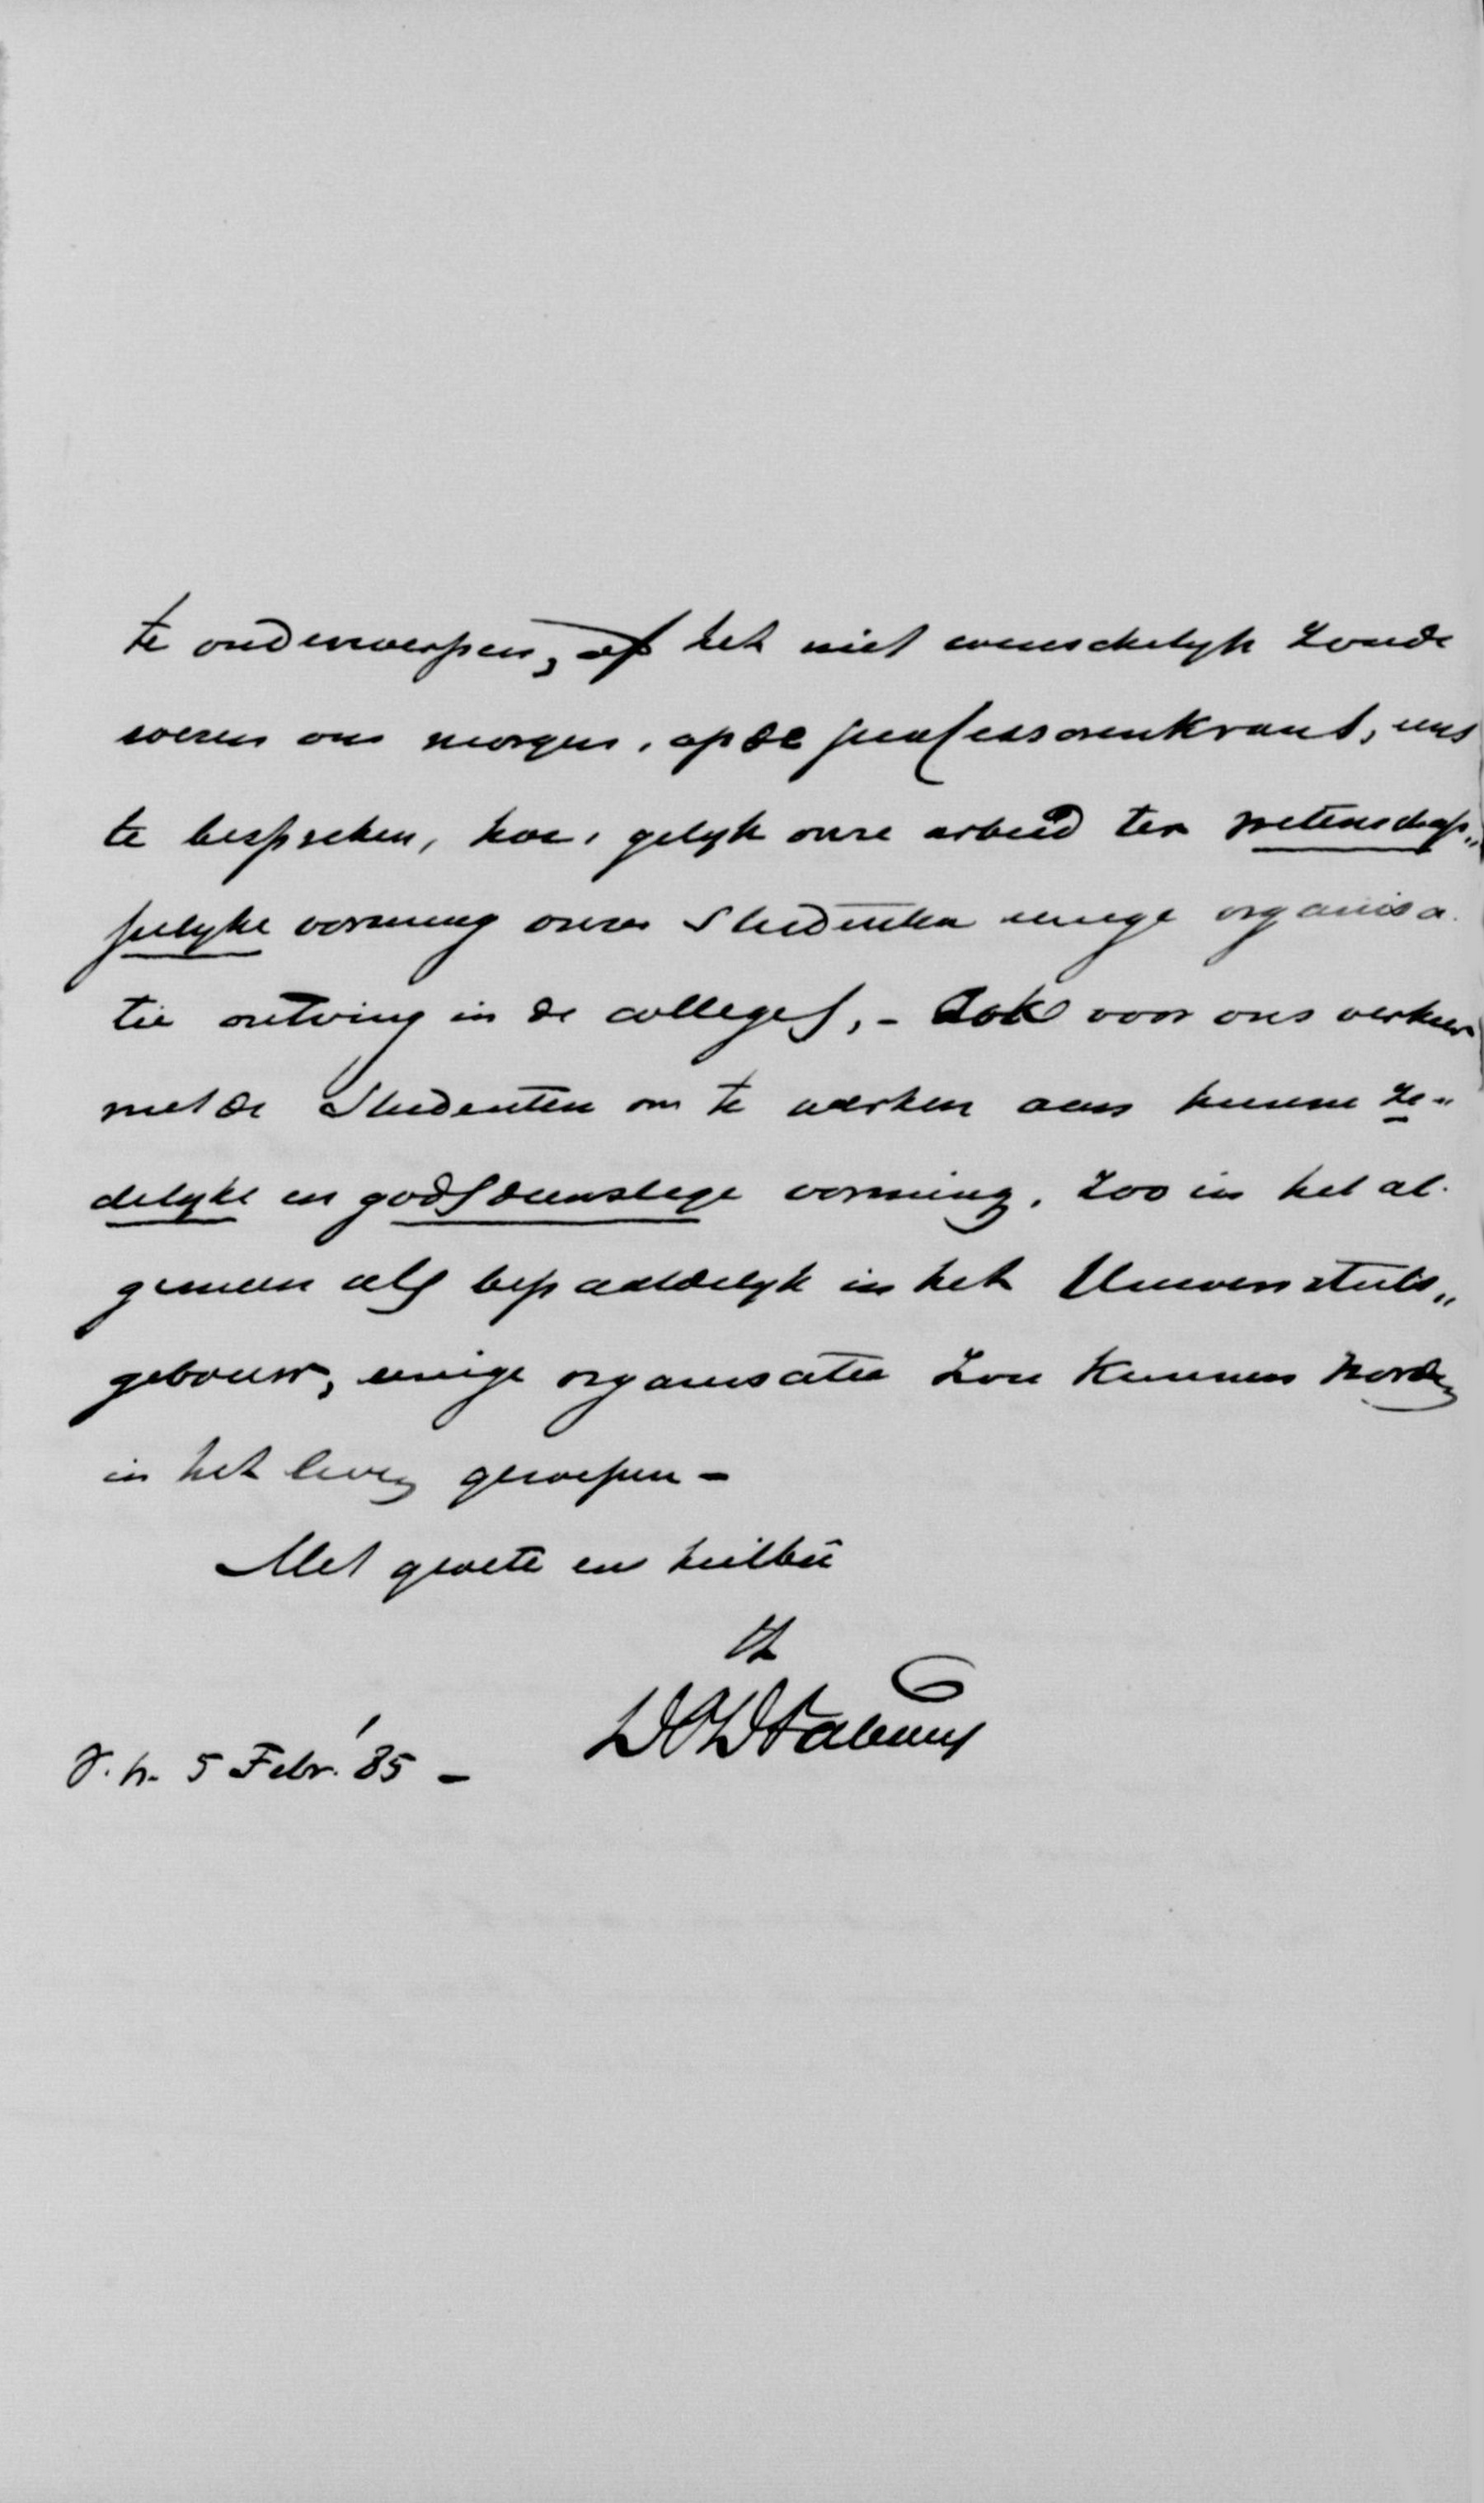 te onderwerpen, of het niet wenschelyk zoude
wezen ons morgen, op de professorenkrans, eens
te bespreken, hoe, gelyk onze arbeid ter wetenschap„
pelyke vorming onzer Studenten eenige organisa-
tie ontving in de colleges, - ook voor ons verkeer
met de Studenten om te werken aan hunne ze„
delyke en godsdienstige vorming, zoo in het al-
gemeen als bepaaldelyk in het Universiteits„
gebouw, eenige organisatie zou kunnen worden
in het leven geroepen -
Met groete en heilbeê
tt
DPDFabius
v. h. 5 Febr. '85 -